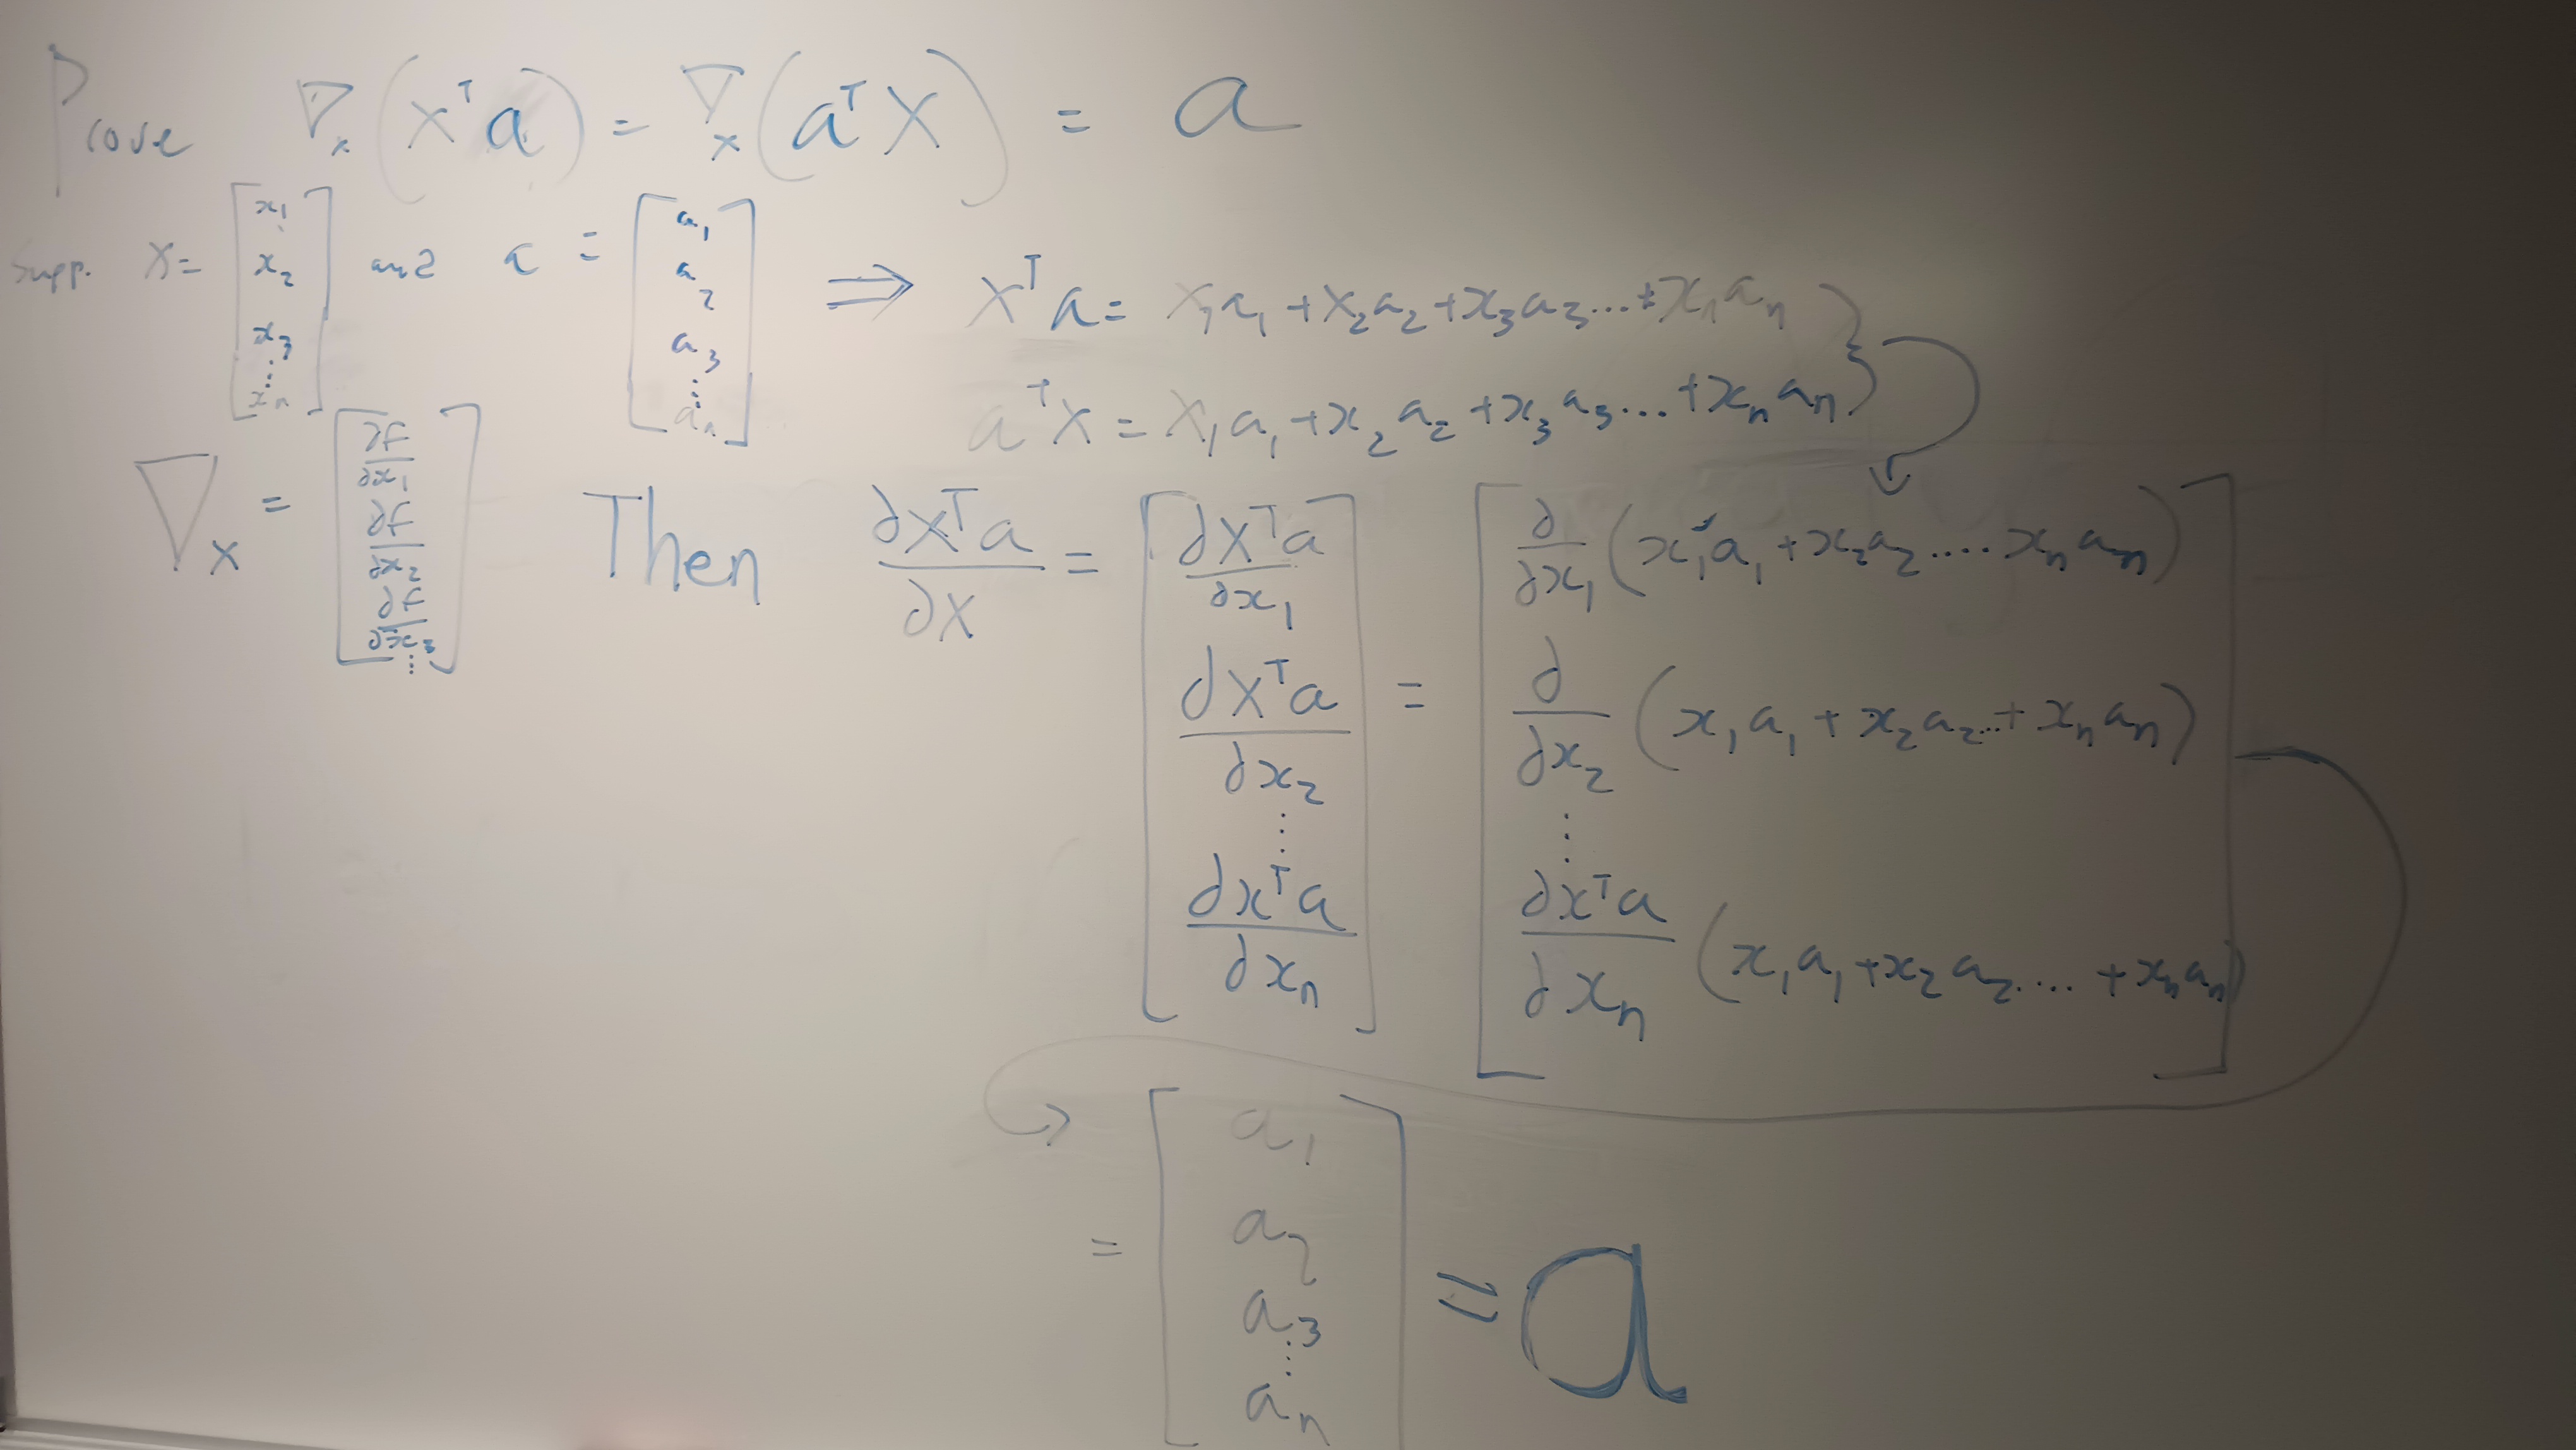 Prove ∇ₓ(xᵀa) = ∇ₓ(aᵀx) = a
Supp. x = [x₁ x₂ x₃ ⋮ xₙ] and a = [a₁ a₂ a₃ ⋮ aₙ] ⟹ xᵀa = x₁a₁ + x₂a₂ + x₃a₃ ... + xₙaₙ }
aᵀx = x₁a₁ + x₂a₂ + x₃a₃ ... + xₙaₙ }
∇ₓ = [∂f/∂x₁ ∂f/∂x₂ ∂f/∂x₃ ⋮]
Then ∂xᵀa/∂x = [∂xᵀa/∂x₁ ∂xᵀa/∂x₂ ⋮ ∂xᵀa/∂xₙ] = [∂/∂x₁ (x₁a₁ + x₂a₂ .... xₙaₙ)
∂/∂x₂ (x₁a₁ + x₂a₂ .. + xₙaₙ)
⋮
∂xᵀa/∂xₙ (x₁a₁ + x₂a₂ .... + xₙaₙ)]
= [a₁ a₂ a₃ ⋮ aₙ] = a